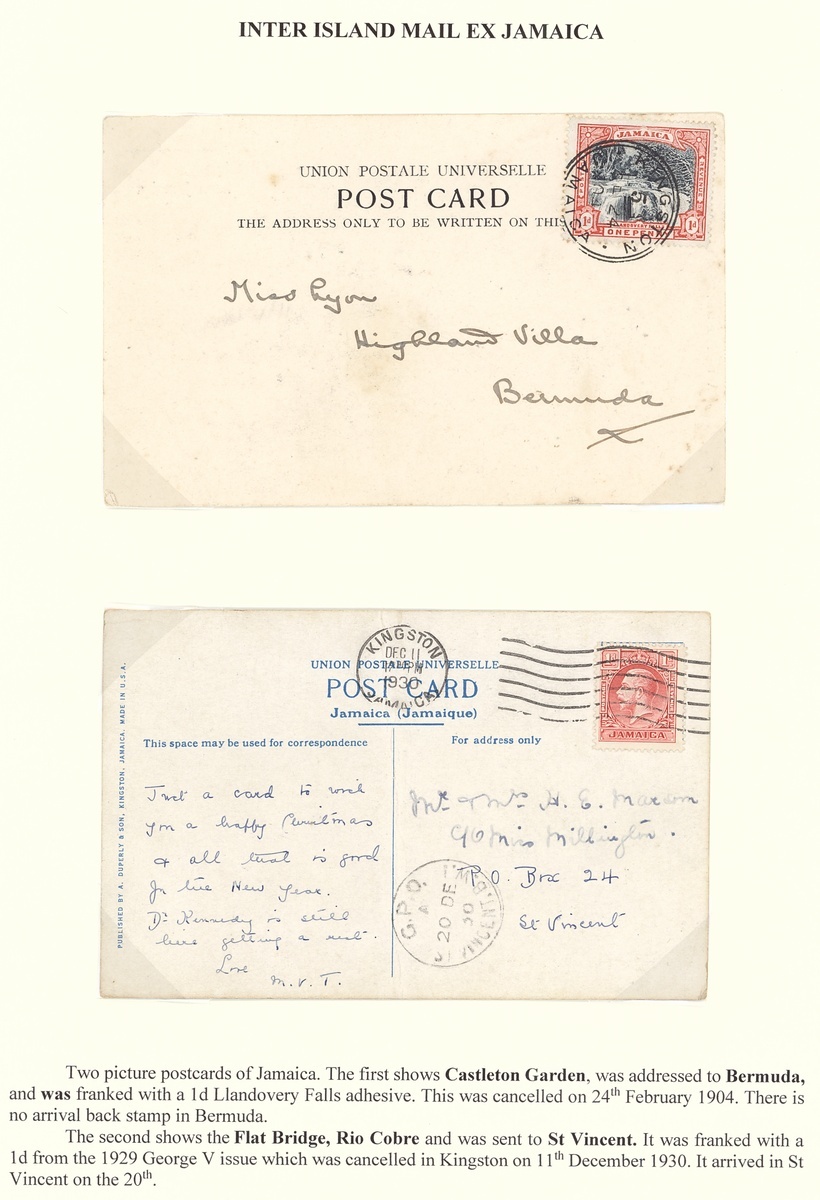 INTER ISLAND MAIL EX JAMAICA
UNION POSTALE UNIVERSELLE
POST CARD
THE ADDRESS ONLY TO BE WRITTEN ON THIS
JAMAICA
POSTAGE
REVENUE
LLANDOVERY FALLS
1d ONE PENNY 1d
KINGSTON
JAMAICA
Miss Lyon
Highland Villa
Bermuda
KINGSTON
DEC 11
1930
JAMAICA
UNION POSTALE UNIVERSELLE
POST CARD
Jamaica (Jamaique)
1d 1d
JAMAICA
PUBLISHED BY A. DUPERLY & SON, KINGSTON, JAMAICA. MADE IN U.S.A.
This space may be used for correspondence
For address only
Just a card to wish
you a happy Christmas
& all that is good
for the New Year.
Dr Kennedy is still
here getting a rest.
Love
M. V. T.
Mr & Mrs H. E.
c/o Miss Millington.
P.O. Box 24
St Vincent
G.P.O.
20 DE
30
ST VINCENT
Two picture postcards of Jamaica. The first shows Castleton Garden, was addressed to Bermuda,
and was franked with a 1d Llandovery Falls adhesive. This was cancelled on 24th February 1904. There is
no arrival back stamp in Bermuda.
The second shows the Flat Bridge, Rio Cobre and was sent to St Vincent. It was franked with a
1d from the 1929 George V issue which was cancelled in Kingston on 11th December 1930. It arrived in St
Vincent on the 20th.